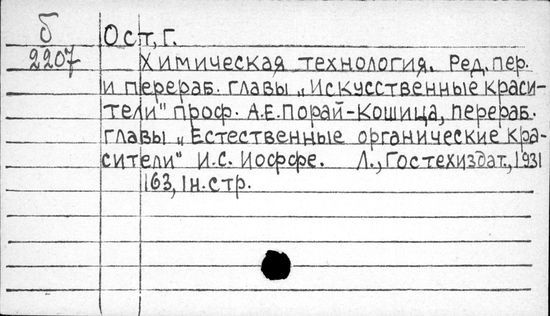 б
2207
Ост, Г.
Химическая технология. Ред. пер.
и перераб. главы „Искусственные краси-
тели" проф. А.Е.Порай-Кошица, перераб.
главы „Естественные органические кра-
сители" И.С. Иоффе. Л., Гостехиздат, 1931
163, 1н.стр.